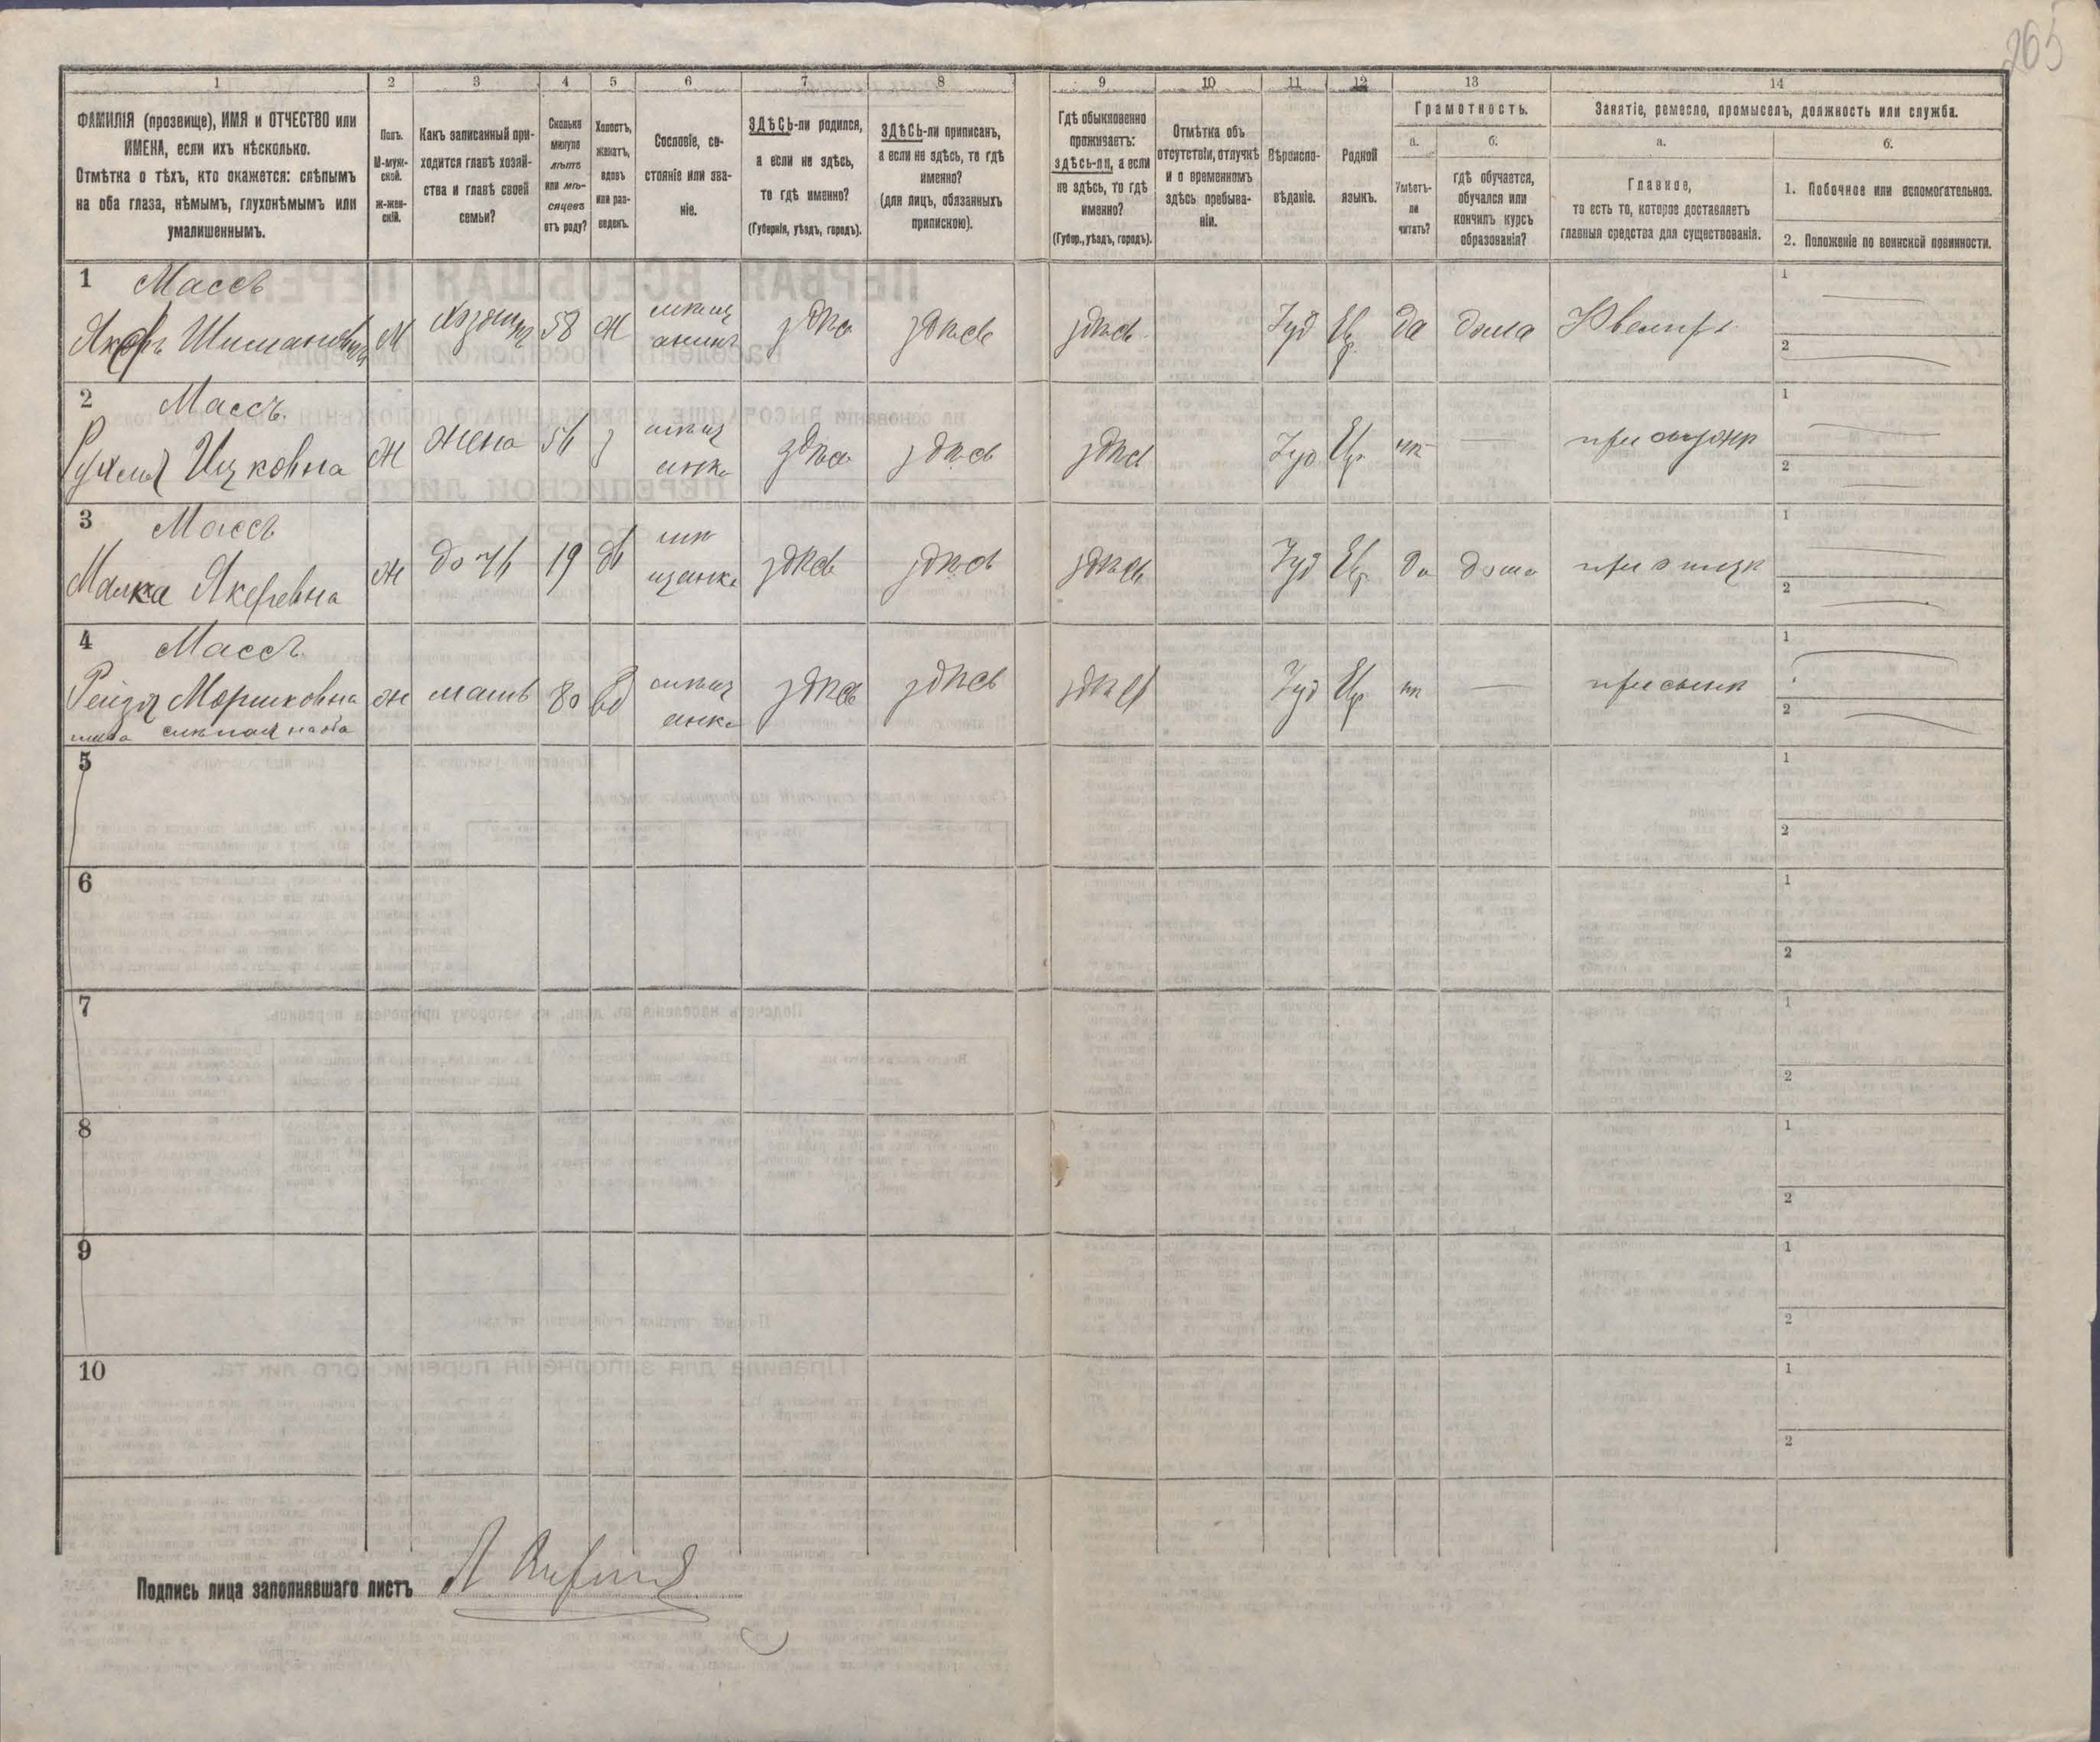 265
1 2 3 4 5 6 7 8 9 10 11 12 13 14
ФАМИЛІЯ (прозвище), ИМЯ и ОТЧЕСТВО или
ИМЕНА, если ихъ нѣсколько.
Отмѣтка о тѣхъ, кто окажется: слѣпымъ
на оба глаза, нѣмымъ, глухонѣмымъ или
умалишеннымъ.
Полъ.
М-муж-
ской.
ж-жен-
скій.
Какъ записанный при-
ходится главѣ хозяй-
ства и главѣ своей
семьи?
Сколько
минуло
лѣтъ
или мѣ-
сяцевъ
отъ роду?
Холостъ,
женатъ,
вдовъ
или раз-
веденъ.
Сословіе, со-
стояніе или зва-
ніе.
ЗДѢСЬ-ли родился,
а если не здѣсь,
то гдѣ именно?
(Губернія, уѣздъ, городъ).
ЗДѢСЬ-ли приписанъ,
а если не здѣсь, то гдѣ
именно?
(для лицъ, обязанныхъ
припискою).
Гдѣ обыкновенно
проживаетъ:
здѣсь-ли, а если
не здѣсь, то гдѣ
именно?
(Губер., уѣздъ, городъ).
Отмѣтка объ
отсутствіи, отлучкѣ
и о временномъ
здѣсь пребыва-
ніи.
Вѣроиспо-
вѣданіе.
Родной
языкъ.
Грамотность.
а.
Умѣетъ-
ли
читать?
б.
гдѣ обучается,
обучался или
кончилъ курсъ
образованія?
Занятіе, ремесло, промыселъ, должность или служба.
а.
Главное,
то есть то, которое доставляетъ
главныя средства для существованія.
б.
1. Побочное или вспомогательное.
2. Положеніе по воинской повинности.
1 Массъ
М хозяинъ 58 Ж мѣщ здѣсь здѣсь здѣсь Іуд Евр да дома
анинъ
1
2
2 Массъ
Ицковна Ж жена мѣщ здѣсь здѣсь здѣсь Іуд Евр нѣ —
анка
1
2
3 Массъ
Малка ж дочь 19 дѣ мѣ здѣсь здѣсь здѣсь Іуд Евр да дома при отцѣ
щанка
1
2
4 Массъ
Рейзя Моршковна ж мать 80 вд мѣщ здѣсь здѣсь здѣсь Іуд Евр нѣ — при сынѣ
анка
слѣпая на оба
1
2
5
1
2
6
1
2
7
1
2
8
1
2
9
1
2
10
1
2
Подпись лица заполнявшаго листъ